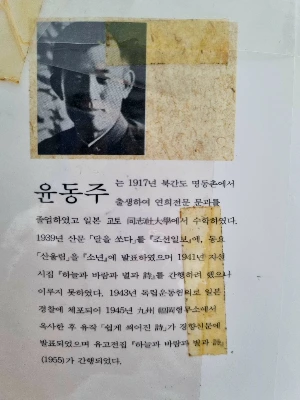 윤동주
는 1917년 북간도 명동촌에서
출생하여 연희전문 문과를
졸업하였고 일본 교토 同志社大學에서 수학하였다.
1939년 산문 「달을 쏘다」를 『조선일보』에, 동요
「산울림」을 『소년』에 발표하였으며 1941년 자선
시집 『하늘과 바람과 별과 詩』를 간행하려 했으나
이루지 못하였다. 1943년 독립운동혐의로 일본
경찰에 체포되어 1945년 九州 福岡형무소에서
옥사한 후 유작 「쉽게 씌어진 詩」가 경향신문에
발표되었으며 유고전집 『하늘과 바람과 별과 詩』
(1955)가 간행되었다.